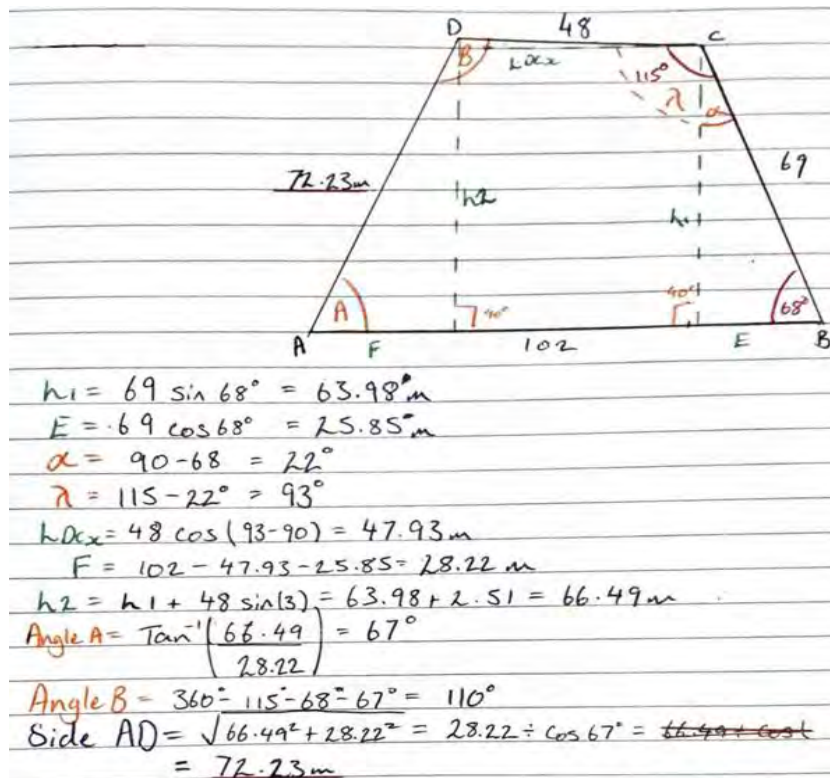 D 48 C
B LDCx 115° λ α
72.23m h2 h1 69
A 90° 90° 68°
A F 102 E B
h1 = 69 sin 68° = 63.98m
E = 69 cos 68° = 25.85m
α = 90-68 = 22°
λ = 115-22° = 93°
LDCx = 48 cos (93-90) = 47.93m
F = 102 - 47.93 - 25.85 = 28.22 m
h2 = h1 + 48 sin(3) = 63.98 + 2.51 = 66.49m
Angle A = Tan⁻¹(66.49/28.22) = 67°
Angle B = 360° - 115° - 68° - 67° = 110°
Side AD = √66.49² + 28.22² = 28.22 ÷ cos 67° =
= 72.23m